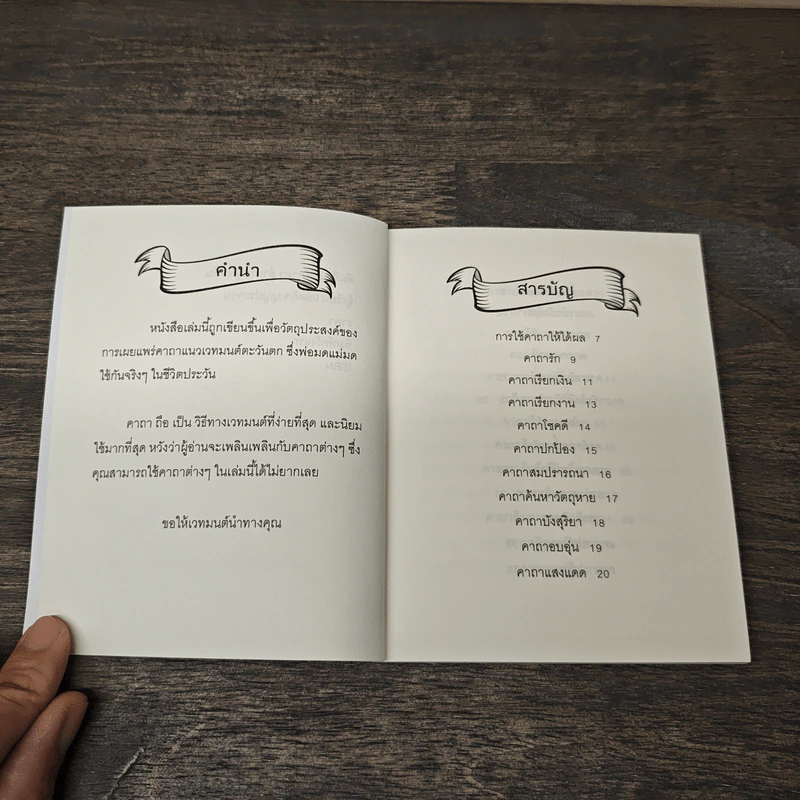 คำนำ
หนังสือเล่มนี้ถูกเขียนขึ้นเพื่อวัตถุประสงค์ของ
การเผยแพร่คาถาแนวเวทมนต์ตะวันตก ซึ่งพ่อมดแม่มด
ใช้กันจริงๆ ในชีวิตประวัน
คาถา ถือ เป็น วิธีทางเวทมนต์ที่ง่ายที่สุด และนิยม
ใช้มากที่สุด หวังว่าผู้อ่านจะเพลินเพลินกับคาถาต่างๆ ซึ่ง
คุณสามารถใช้คาถาต่างๆ ในเล่มนี้ได้ไม่ยากเลย
ขอให้เวทมนต์นำทางคุณ
สารบัญ
การใช้คาถาให้ได้ผล 7
คาถารัก 9
คาถาเรียกเงิน 11
คาถาเรียกงาน 13
คาถาโชคดี 14
คาถาปกป้อง 15
คาถาสมปรารถนา 16
คาถาค้นหาวัตถุหาย 17
คาถาบังสุริยา 18
คาถาอบอุ่น 19
คาถาแสงแดด 20